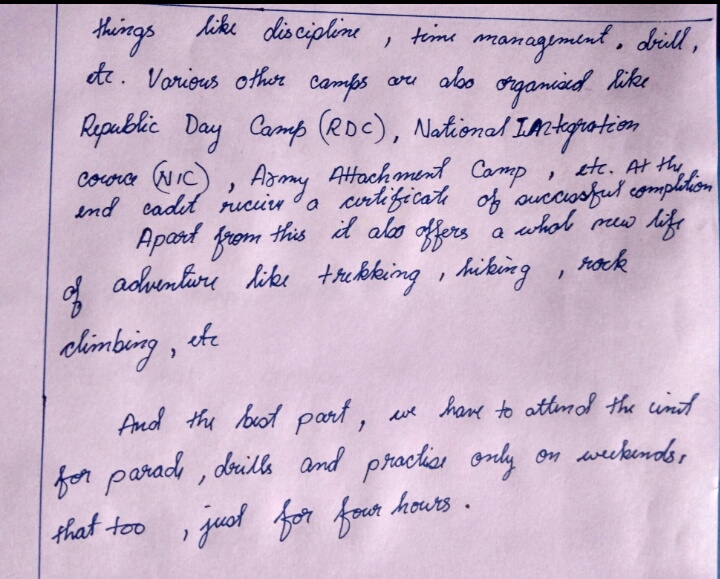 things like discipline , time management , drill ,
etc . Various other camps are also organised like
Republic Day Camp (RDC) , National Integration
(NIC) , Army Attachment Camp , etc. At the
end cadet recieve a certificate of successful completion
Apart from this it also offers a whole new life
of adventure like trekking , hiking , rock
climbing , etc
And the best part , we have to attend the unit
for parade , drills and practise only on weekends ,
that too , just for four hours .